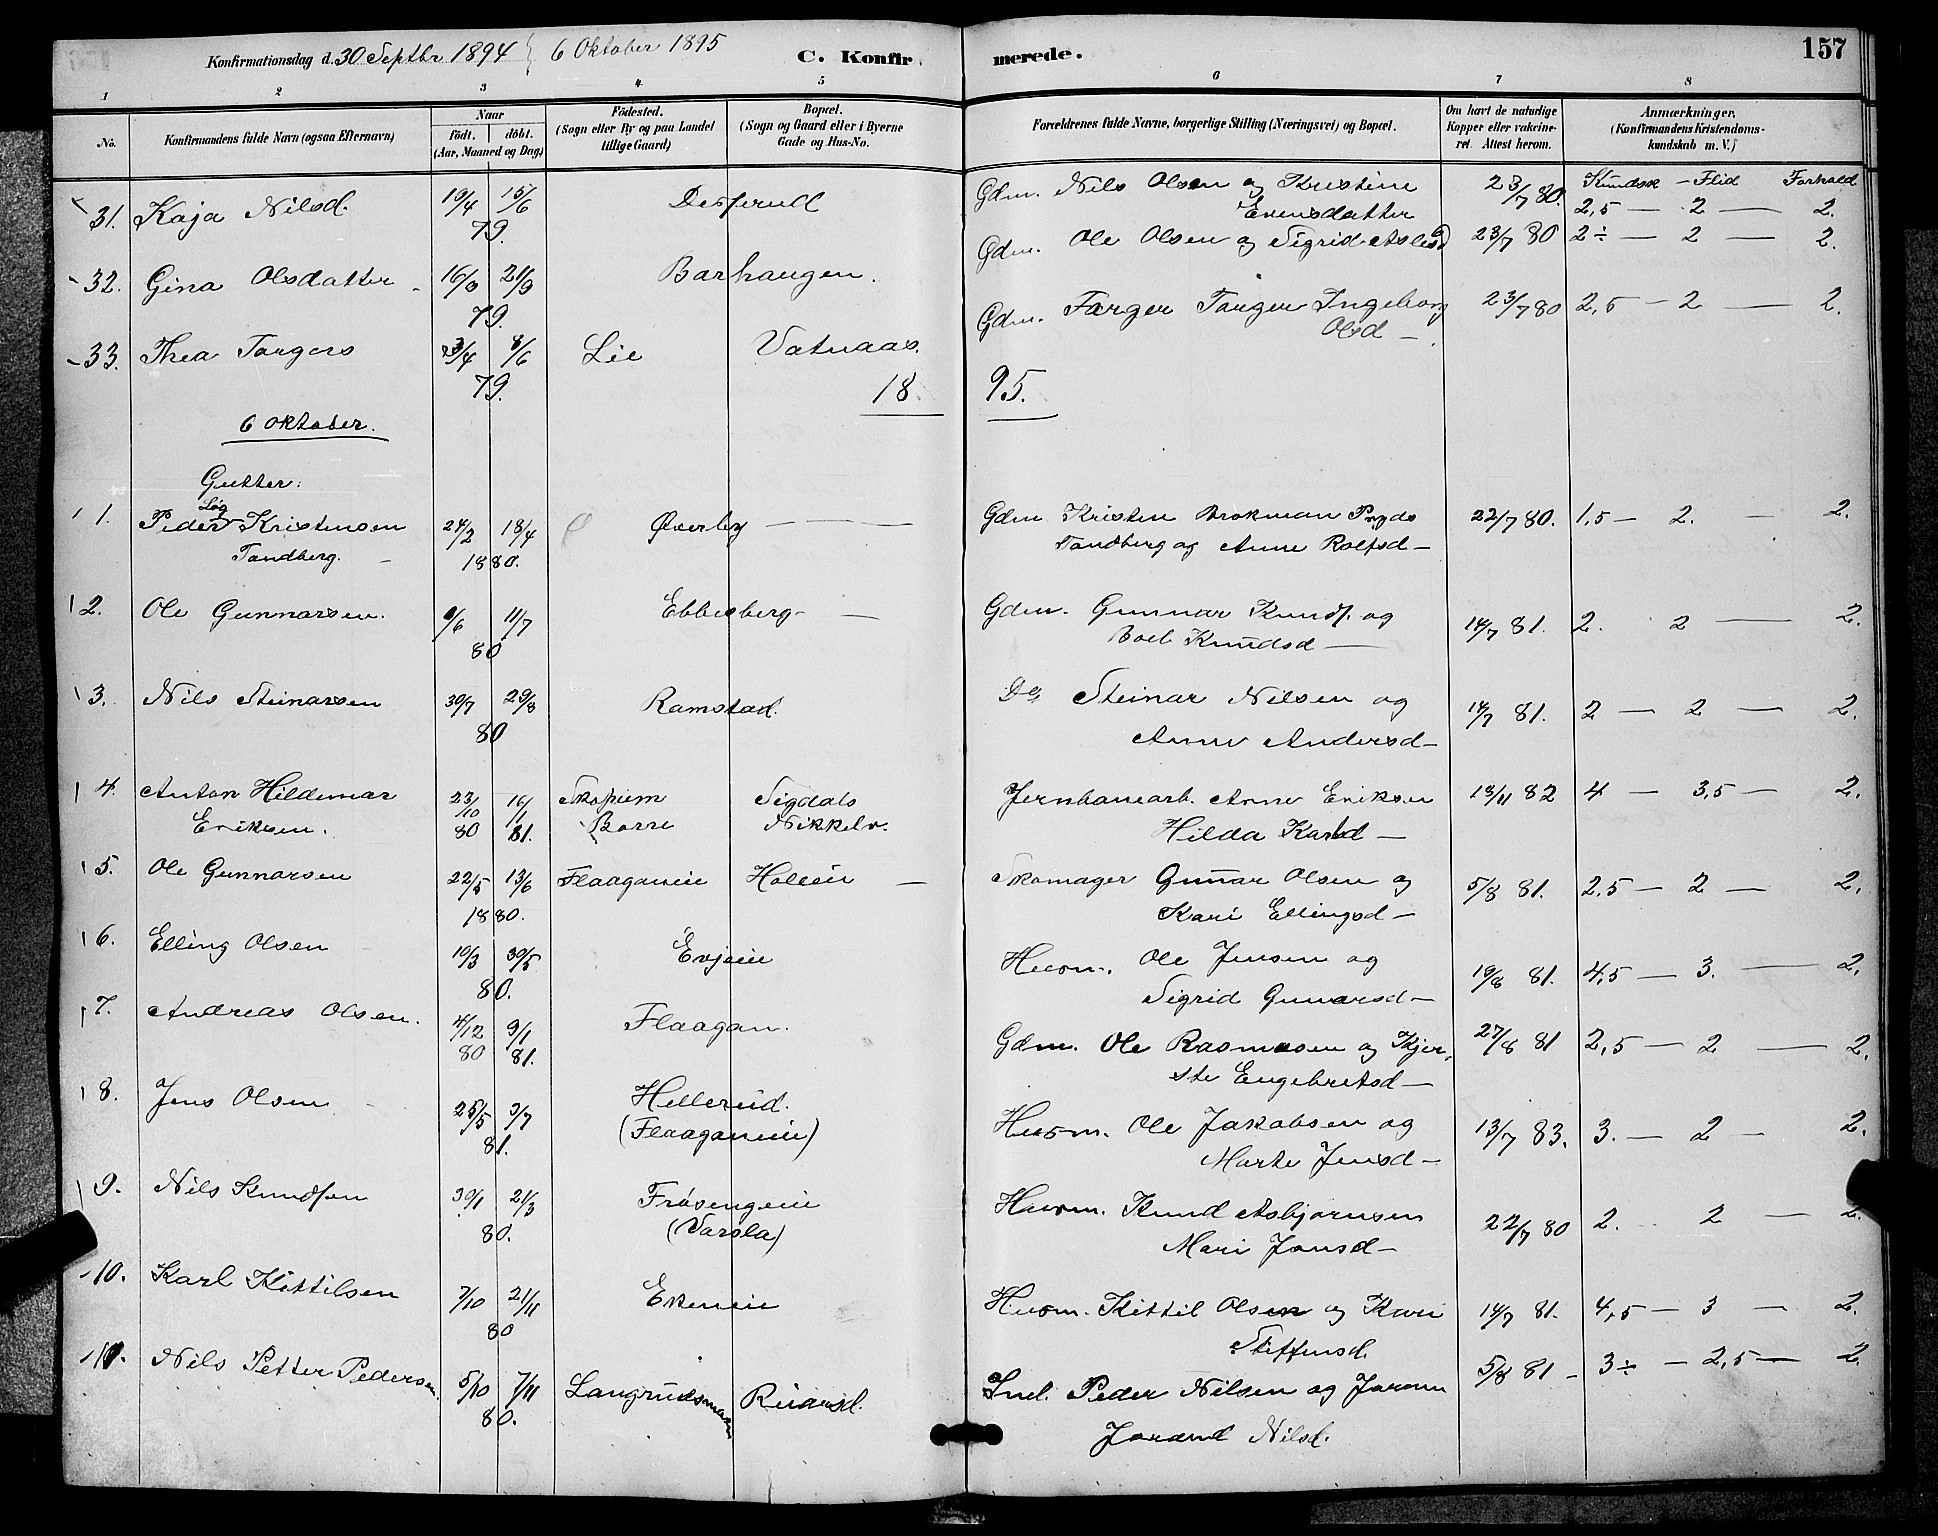 Konfirmationsdag d. 30 Septbr 1894 6 Oktober 1895 C. Konfir- merede. 157
1 2 3 4 5 6 7 8
No. Konfirmandens fulde Navn (ogsaa Efternavn) Naar født. døbt. (Aar, Maaned og Dag) Fødested. (Sogn eller By og paa Landet tillige Gaard) Bopæl. (Sogn og Gaard eller i Byerne Gade og Hus-No. Forældrenes fulde Navne, borgerlige Stilling (Næringsvei) og Bopæl. Om havt de naturlige Kopper eller vakcine- ret. Attest herom. Anmærkninger. (Konfirmandens Kristendoms- kundskab m. V.)
Kundsk - Flid Forhold
31. Kaja Nilsd. 19/4 15/6 Desserud Gdm. Nils Olsen og Kristine 23/7 80. 2,5 — 2 — 2.
79. Evensdatter
32. Gina Olsdatter 16/8 21/9 Barhaugen. Gdm. Ole Olsen og Sigrid Aslesd 23/7 80 2÷ — 2 — 2.
79.
33. Thea Torgers 23/4 8/6 Lie Vatnaas. Gdm. Torger Torger Ingeborg 23/7 80 2,5 — 2 — 2.
79. Olsd —
18 95.
6 Oktober.
Gutter:
1. Peder Løg Kristensen 24/2 18/4 Øverby — — — Gdm Kristen Brokman Peds 22/7 80. 1,5 — 2. — 2.
Tandberg. — 1880. Tandberg og Anne Rolfsd —
2. Ole Gunnarsen. 6/6 11/7 Ebbesberg — — Gdm. Gunnar Knuds. og 14/7 81. 2. 2 — 2.
80 Boel Knudsd —
3. Nils Steinarsen 30/7 29/8 Ramstad. Do Steinar Nilsen og 14/7 81. 2 — 2 — 2.
80 Anne Andersd —
4. Anton Hildemar 23/10 16/1 Skopum Sigdals Jernbanearb. Arne Eriksen 13/11 82 4 — 3,5 — 2.
Eriksen. 80 81. Borre Nikkelv. Hilda Karlsd —
5. Ole Gunnarsen 22/5 13/6 Flaaganeie Holeen — Skomager Gunnar Olsen og 5/8 81. 2,5 — 2 — 2.
1880. Kari Ellingsd —
6. Elling Olsen 10/3 30/5 Evjeeie Husm. Ole Jensen og 19/8 81. 4,5 — 3. — 2.
80. Sigrid Gunarsd —
7. Andreas Olsen. 4/12 9/1 Flaagan. Gdm. Ole Rasmusen og Kjer- 27/8 81 2,5 — 2 — 2.
80 81. ste Engebretsd —
8. Jens Olsen 25/5 3/7 Hellerud. Husm. Ole Jakobsen og 13/7 83. 3. — 2 — 2.
81. (Flaaganeie) Marte Jensd —
9. Nils Knudsen 30/1 21/3 Frøsengeie Husm. Knud Asbjørnsen 22/7 80 2. 2 — 2.
80. (Varsla) Mari Jonsd —
10. Karl Kittilsen 7/10 21/11 Ekeneie Husm. Kittil Olsen og Kari 14/7 81. 4,5 — 3 — 2.
80 Steffensd.
11. Nils Petter Pedersen. 5/10 7/11 Langrudsmoen Ruansd. Ind. Peder Nilsen og 5/8 81 — 3÷ — 2,5 — 2.
80. Jorand Nilsd.